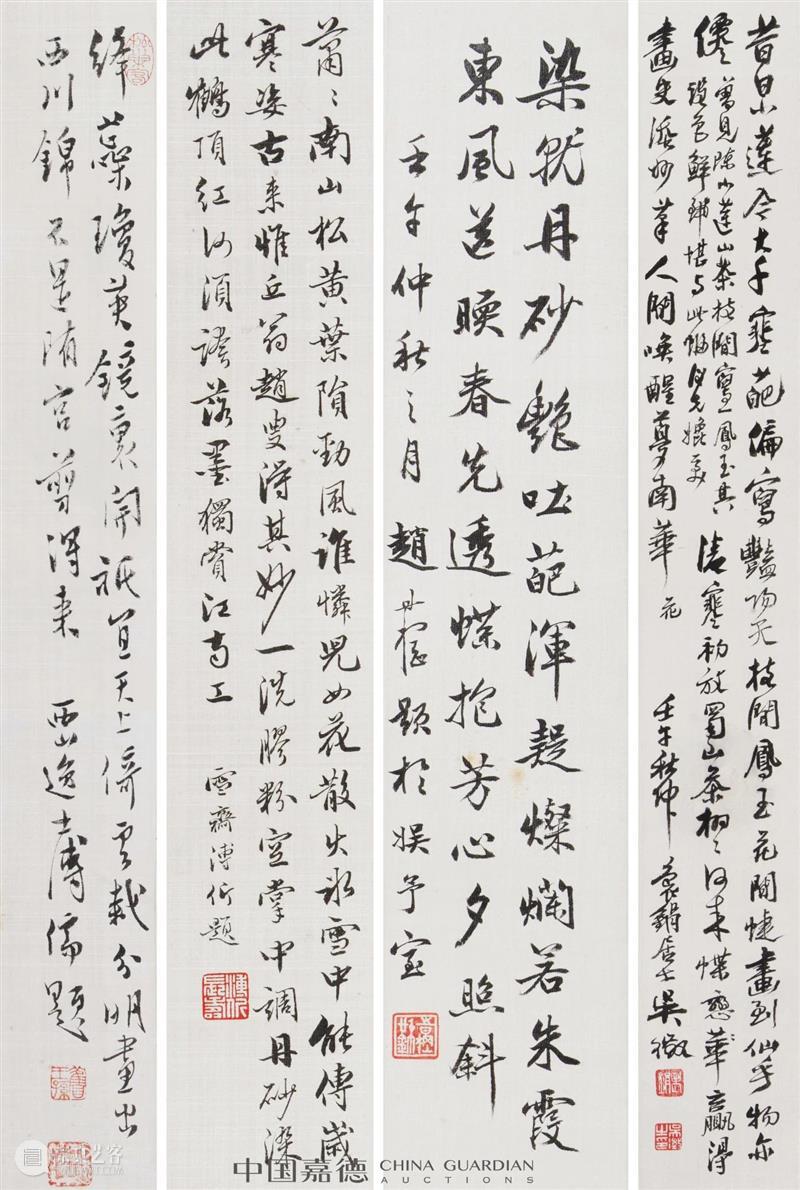 昔日小蓮今大千寒葩偏寫豔陽天枝間鳳玉花間蜨畫到仙乎物亦
僊 曾見陳小蓮山茶枝間寫一鳳玉其
設色鮮錦堪与此幅媲美 清寒初放蜀山茶栩〻何來蝶戀華贏得
畫史添妙筆人間喚醒夢南華 花 壬午秋仲 居士吳徵
染就丹砂艷吐葩渾疑燦爛若朱霞
東風送暖春先透蝶抱芳心夕照斜
壬午仲秋之月趙 題於娛予室
蕭〻南山松黃葉隕勁風誰憐兒女花散火冰雪中能傳歲
寒姿古來惟丘翁趙叟得其妙一洗膠粉空掌中調丹砂染
此鶴頂紅何須誇落墨獨賞江南工 雪齋溥伒題
絳蘂瓊英鏡裏開祇宜天上倚雲栽分明畫出
西川錦不是隋宮剪得來 西山逸士溥儒題
中国嘉德 CHINA GUARDIAN
AUCTIONS